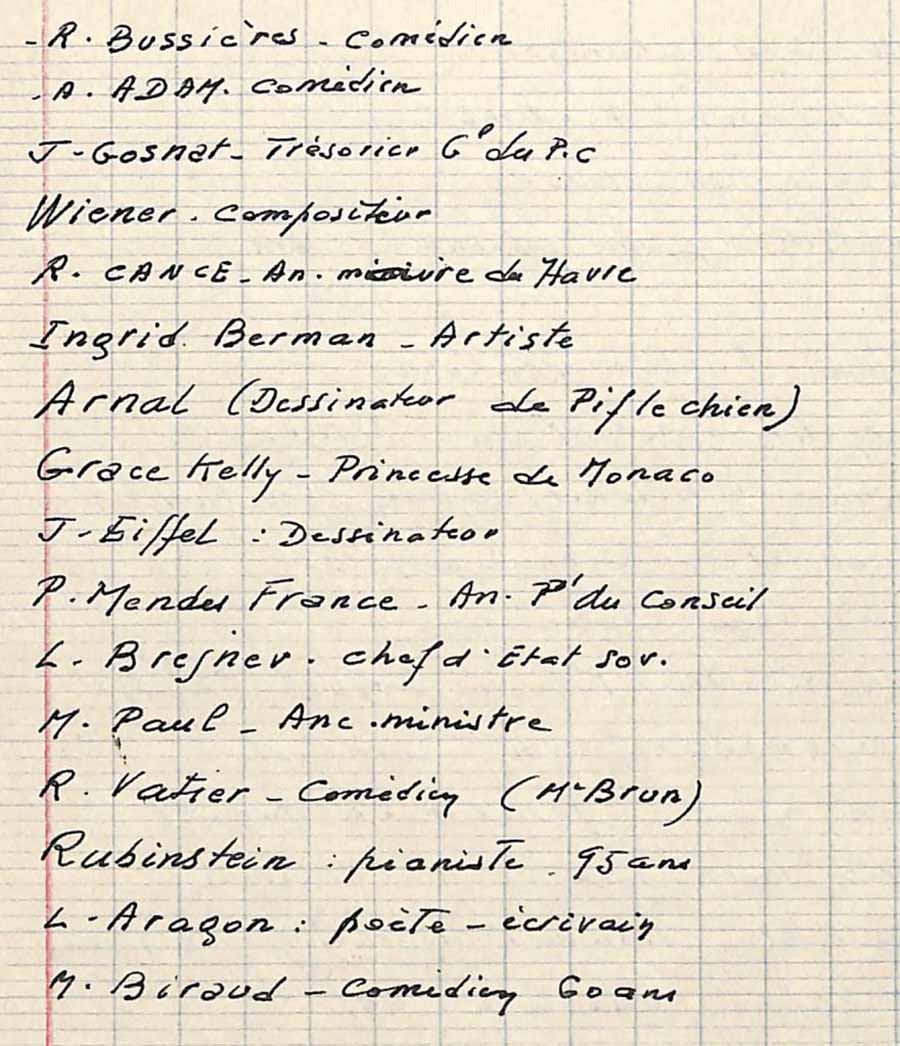 - R. Bussières - Comédien
- A. ADAM. Comédien
J - Gosnat - Trésorier Gˡ du P.C
Wiener. Compositeur
R. CANCE - An. maire du Havre
Ingrid Berman - Artiste
Arnal (Dessinateur de Pif le chien)
Grace Kelly - Princesse de Monaco
J - Eiffel : Dessinateur
P. Mendes France - An. Pᵗ du Conseil
L - Brejnev. chef d'Etat Sov.
M. Paul - Anc. ministre
R. Vattier - Comédien (Mʳ Brun)
Rubinstein : pianiste. 95 ans
L - Aragon : poète - écrivain
M. Biraud - Comédien 60 ans